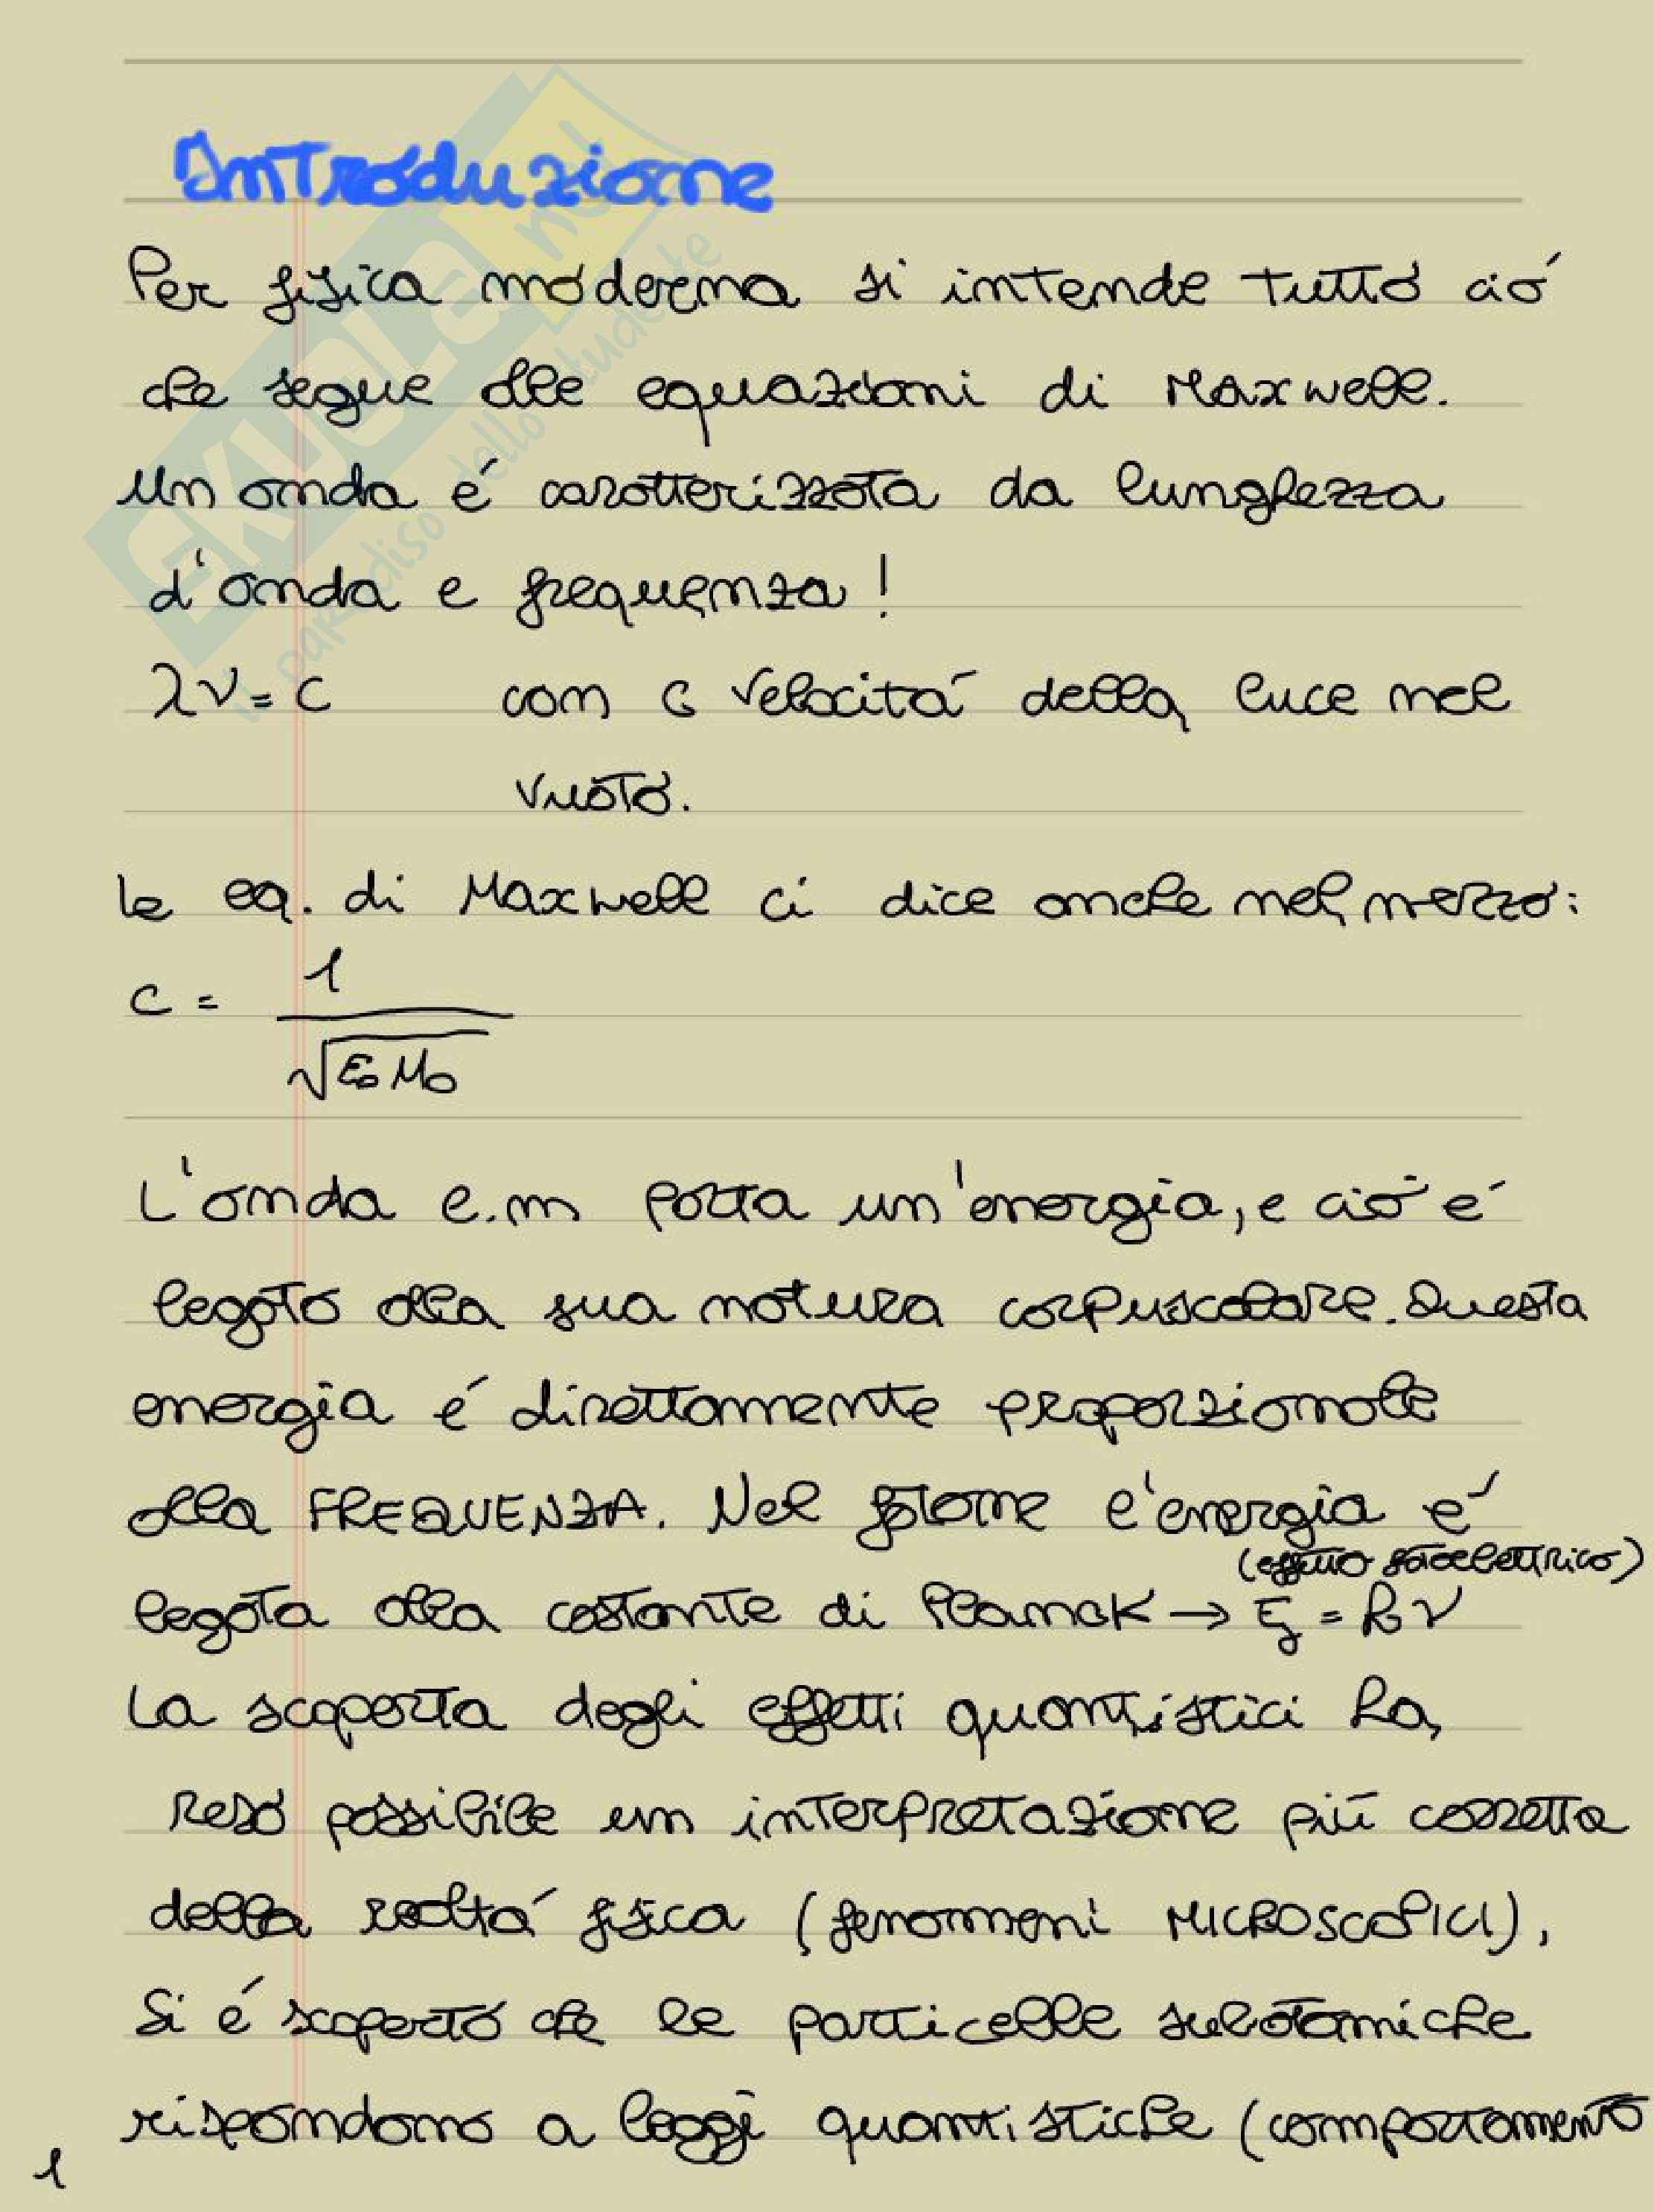 Introduzione
Per fisica moderna si intende tutto ció
che segue alle equazioni di Maxwell.
Un onda é caratterizzata da lunghezza
d'onda e frequenza!
λν = c con c velocitá della luce nel
vuoto.
le eq. di Maxwell ci dice anche nel mezzo:
c = 1
√ε₀μ₀
L'onda e.m porta un'energia, e ció é
legato alla sua natura corpuscolare. Questa
energia é direttamente proporzionale
alla FREQUENZA. Nel fotone l'energia é
(effetto fotoelettrico)
legata alla costante di Planck → Eγ = hν
La scoperta degli effetti quantistici ha
reso possibile un interpretazione piú corretta
della realtá fisica (fenomeni MICROSCOPICI),
Si é scoperto che le particelle subatomiche
rispondono a leggi quantistiche (comportamento
1
SKUOLA.net
il paradiso dello studente